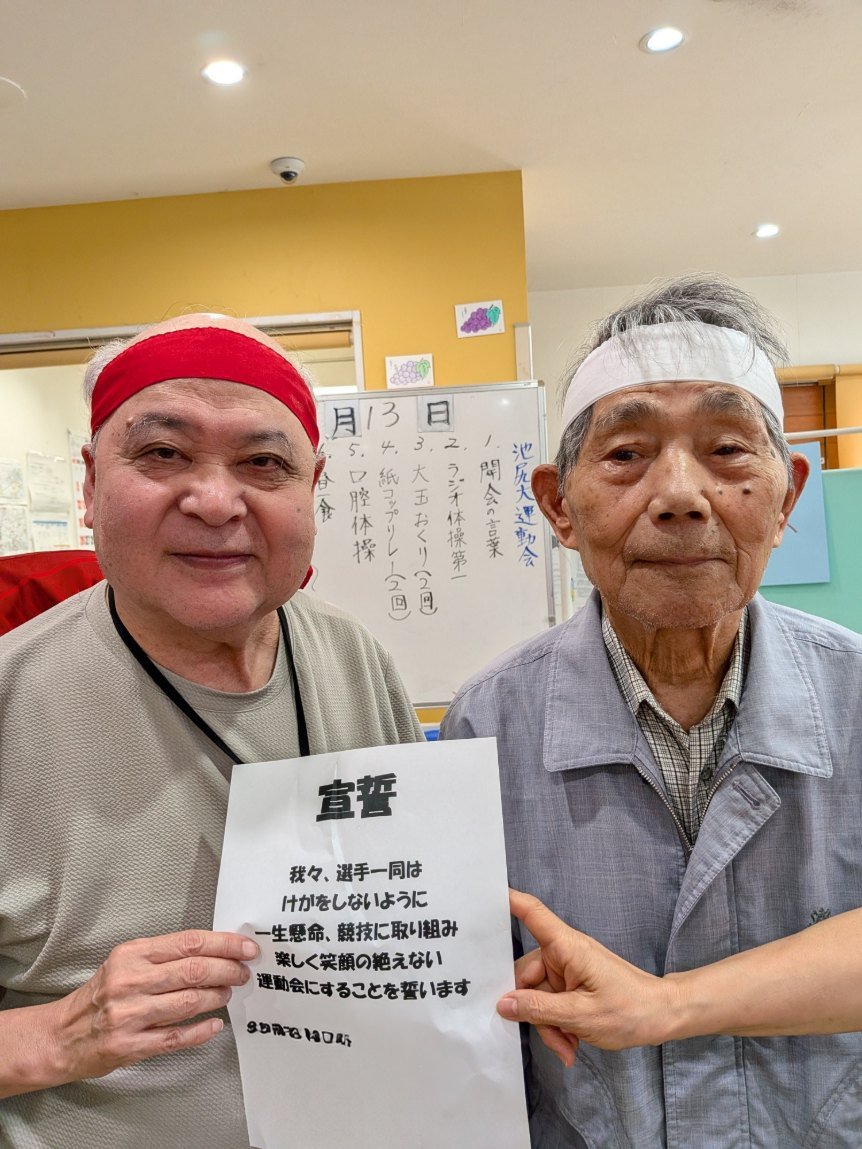 月13日
池尻大運動会
1. 開会の言葉
2. ラジオ体操第一
3. 大玉おくり(2回)
4. 紙コップリレー(2回)
5. 口腔体操
食
宣誓
我々、選手一同は
けがをしないように
一生懸命、競技に取り組み
楽しく笑顔の絶えない
運動会にすることを誓います